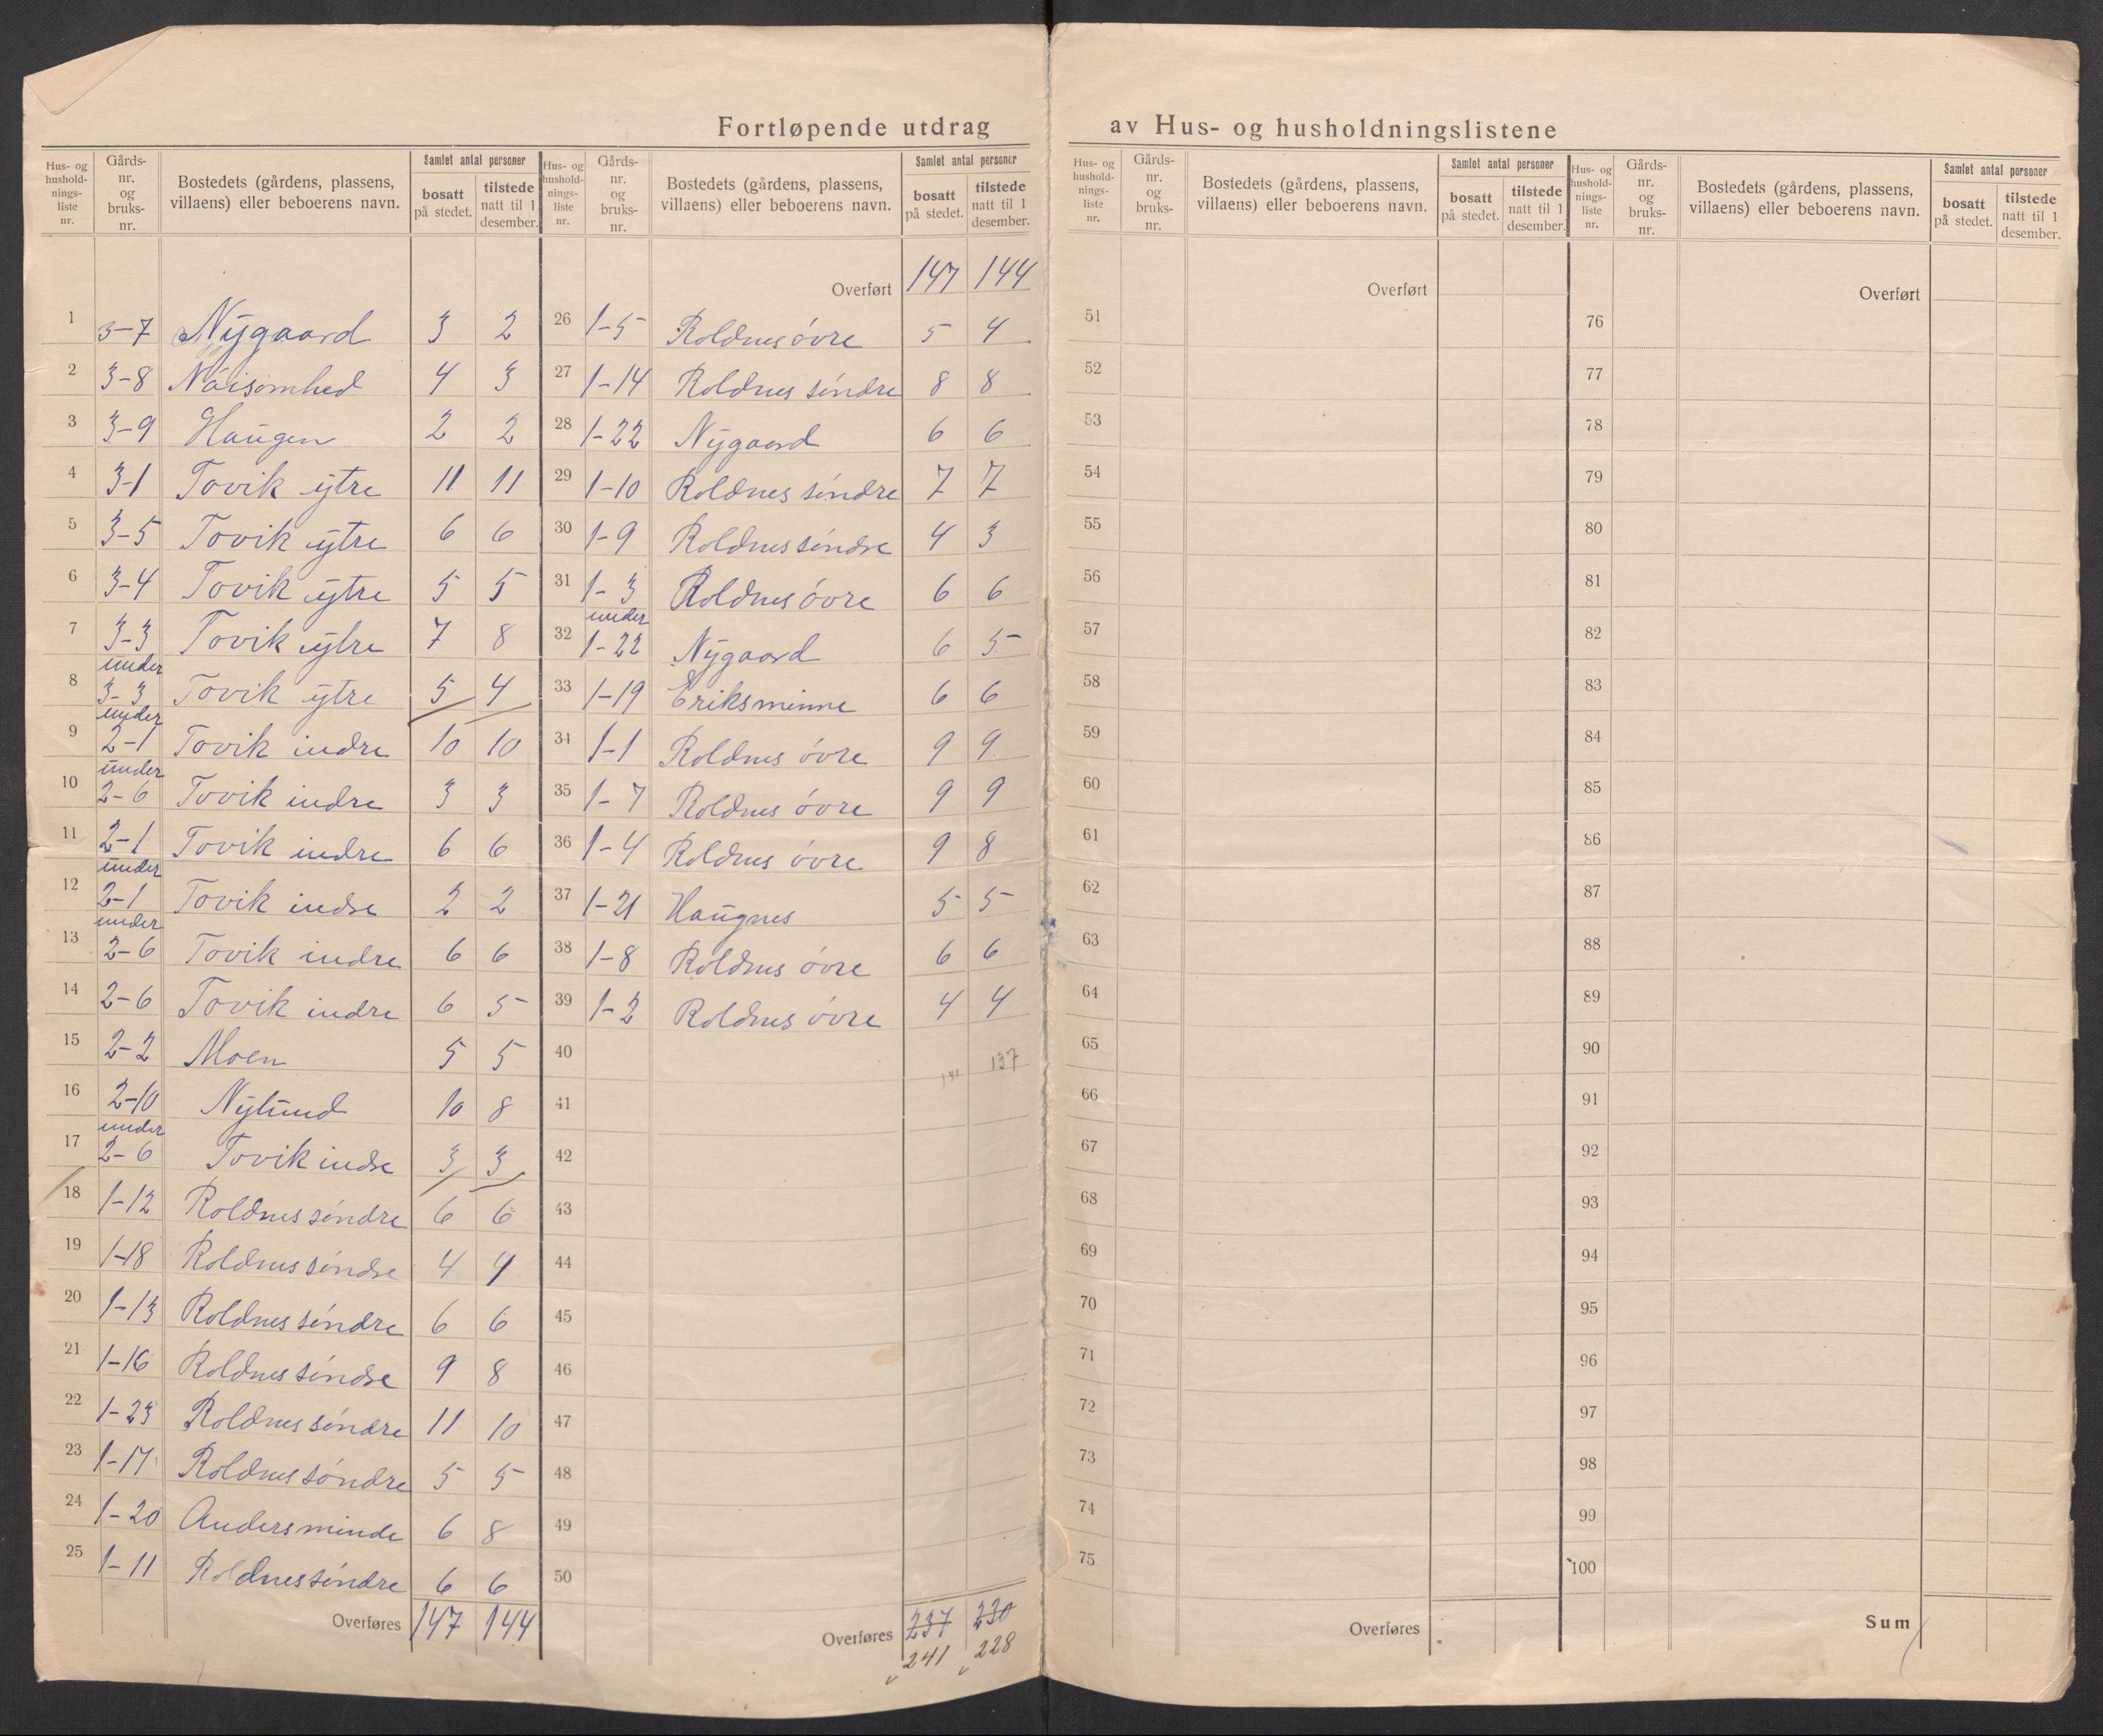 Fortløpende utdrag av Hus- og husholdningslistene
Hus- og hushold-nings-liste nr. Gårds-nr. og bruks-nr. Bostedets (gårdens, plassens, villaens) eller beboerens navn. Samlet antal personer bosatt på stedet. tilstede natt til 1 desember.
1 3-7 Nygaard 3 2
2 3-8 Nøisomhed 4 3
3 3-9 Haugen 2 2
4 3-1 Tovik ytre 11 11
5 3-5 Tovik ytre 6 6
6 3-4 Tovik ytre 5 5
7 3-3 Tovik ytre 7 8
8 under 3-3 Tovik ytre 5 4
9 under 2-1 Tovik indre 10 10
10 under 2-6 Tovik indre 3 3
11 2-1 Tovik indre 6 6
12 under 2-1 Tovik indre 2 2
13 under 2-6 Tovik indre 6 6
14 2-6 Tovik indre 6 5
15 2-2 Moen 5 5
16 2-10 Nylund 10 8
17 under 2-6 Tovik indre 3 3
18 1-12 Roldnes söndre 6 6
19 1-18 Roldnes söndre 4 4
20 1-13 Roldnes söndre 6 6
21 1-16 Roldnes söndre 9 8
22 1-23 Roldnes söndre 11 10
23 1-17 Roldnes söndre 5 5
24 1-20 Andersminde 6 8
25 1-11 Roldnes söndre 6 6
Overføres 147 144
Hus- og hushold-nings-liste nr. Gårds-nr. og bruks-nr. Bostedets (gårdens, plassens, villaens) eller beboerens navn. Samlet antal personer bosatt på stedet. tilstede natt til 1 desember.
Overført 147 144
26 1-5 Roldnes óvre 5 4
27 1-14 Roldnes söndre 8 8
28 1-22 Nygaard 6 6
29 1-10 Roldnes söndre 7 7
30 1-9 Roldnes söndre 4 3
31 1-3 Roldnes óvre 6 6
32 under 1-22 Nygaard 6 5
33 1-19 Eriksminne 6 6
34 1-1 Roldnes óvre 9 9
35 1-7 Roldnes óvre 9 9
36 1-4 Roldnes óvre 9 8
37 1-21 Haugnes 5 5
38 1-8 Roldnes óvre 6 6
39 1-2 Roldnes óvre 4 4
40 137
41
42
43
44
45
46
47
48
49
50
Overføres 237 230
241 228
Hus- og hushold-nings-liste nr. Gårds-nr. og bruks-nr. Bostedets (gårdens, plassens, villaens) eller beboerens navn. Samlet antal personer bosatt på stedet. tilstede natt til 1 desember.
Overført
51
52
53
54
55
56
57
58
59
60
61
62
63
64
65
66
67
68
69
70
71
72
73
74
75
Overføres
Hus- og hushold-nings-liste nr. Gårds-nr. og bruks-nr. Bostedets (gårdens, plassens, villaens) eller beboerens navn. Samlet antal personer bosatt på stedet. tilstede natt til 1 desember.
Overført
76
77
78
79
80
81
82
83
84
85
86
87
88
89
90
91
92
93
94
95
96
97
98
99
100
Sum